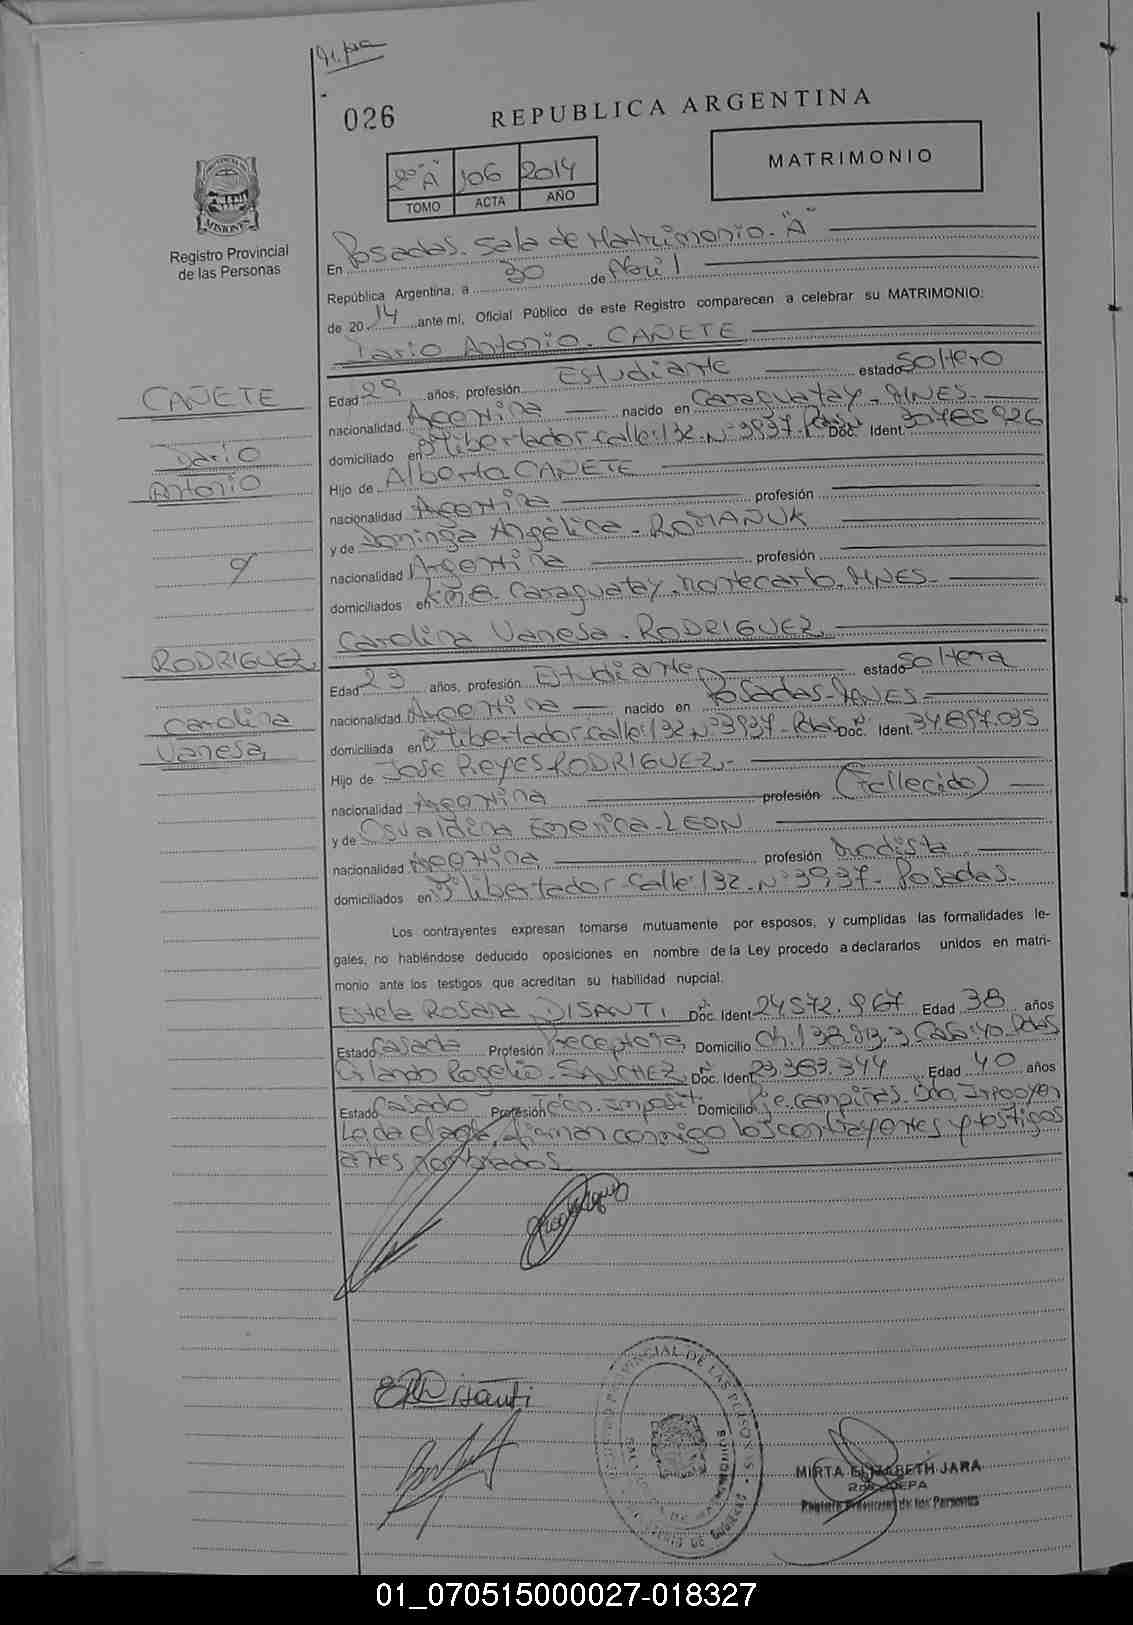 026
REPUBLICA ARGENTINA
MATRIMONIO
2º "A" 106 2014
TOMO ACTA AÑO
Registro Provincial
de las Personas
MISIONES
En Posadas. Sala de Matrimonio. "A"
República Argentina, a 30 de Abril
de 2014 ante mí, Oficial Público de este Registro comparecen a celebrar su MATRIMONIO:
Dario Antonio. CAÑETE
CAÑETE
Dario
Antonio
Edad 29 años, profesión Estudiante estado soltero
nacionalidad Argentina nacido en Caraguatay. MNES.
domiciliado en Bº libertador calle: 132. Nº 3937. Doc. Ident.
Hijo de Alberto CAÑETE
nacionalidad Argentina profesión
y de Dominga Angélica. ROMANUK
nacionalidad Argentina profesión
domiciliados en Caraguatay. montecarlo. MNES.
y
RODRIGUEZ
Carolina
Vanesa.
Carolina Vanesa. RODRIGUEZ
Edad 23 años, profesión Estudiante estado soltera
nacionalidad Argentina nacido en Posadas-MNES
domiciliada en Bº libertador calle: 132. Nº 3937- Pdas Doc. Ident. 34.897.035
Hijo de José Reyes RODRIGUEZ.-
nacionalidad Argentina profesión (Fallecido)
y de Osvaldina LEON
nacionalidad Argentina profesión Modista
domiciliados en Bº libertador- calle: 132. Nº 3937- Posadas.
Los contrayentes expresan tomarse mutuamente por esposos, y cumplidas las formalidades le-
gales, no habiéndose deducido oposiciones en nombre de la Ley procedo a declararlos unidos en matri-
monio ante los testigos que acreditan su habilidad nupcial.
Estela Rosana DISANTI Doc. Ident. 24.572.967 Edad 38 años
Estado Casada Profesión Preceptora Domicilio Ch. Casa: 40. Pdas
Orlando Rogelio. SANCHEZ Doc. Ident. 23.383.344 Edad 40 años
Estado Casado Profesión Técn. Imposit. Domicilio
Leída el acta, firman conmigo los contrayentes y testigos
antes nombrados
Disanti
MIRTA ELIZABETH JARA
Registro Provincial de las Personas
01_070515000027-018327